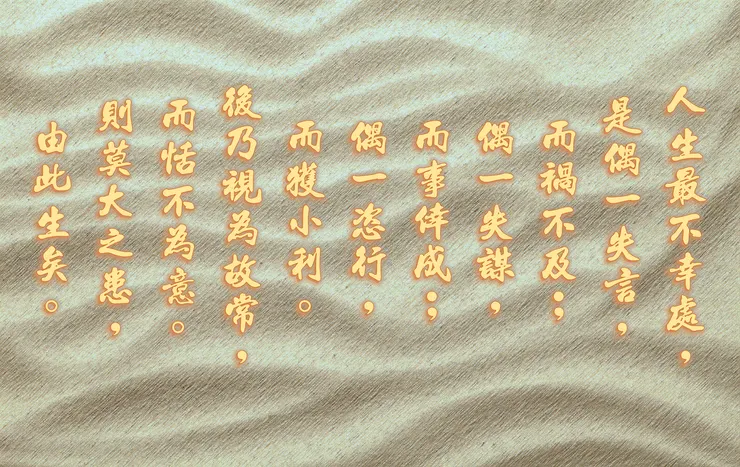 人生最不幸處，
是偶一失言，
而禍不及；
偶一失謀，
而事倖成；
偶一恣行，
而獲小利。
後乃視為故常，
而恬不為意。
則莫大之患，
由此生矣。